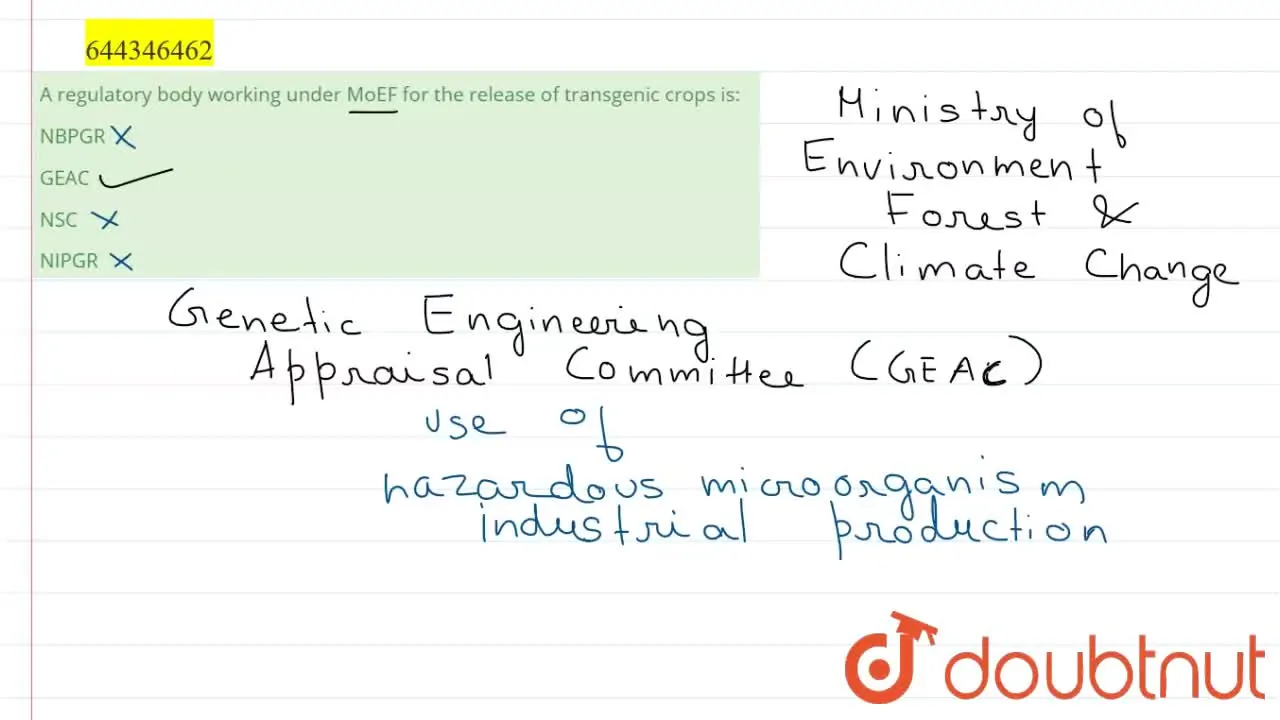 644346462
A regulatory body working under MoEF for the release of transgenic crops is:
NBPGR
GEAC
NSC
NIPGR
Ministry of
Environment
Forest &
Climate Change
Genetic Engineering
Appraisal Committee (GEAC)
use of
hazardous microorganism
industrial production
doubtnut